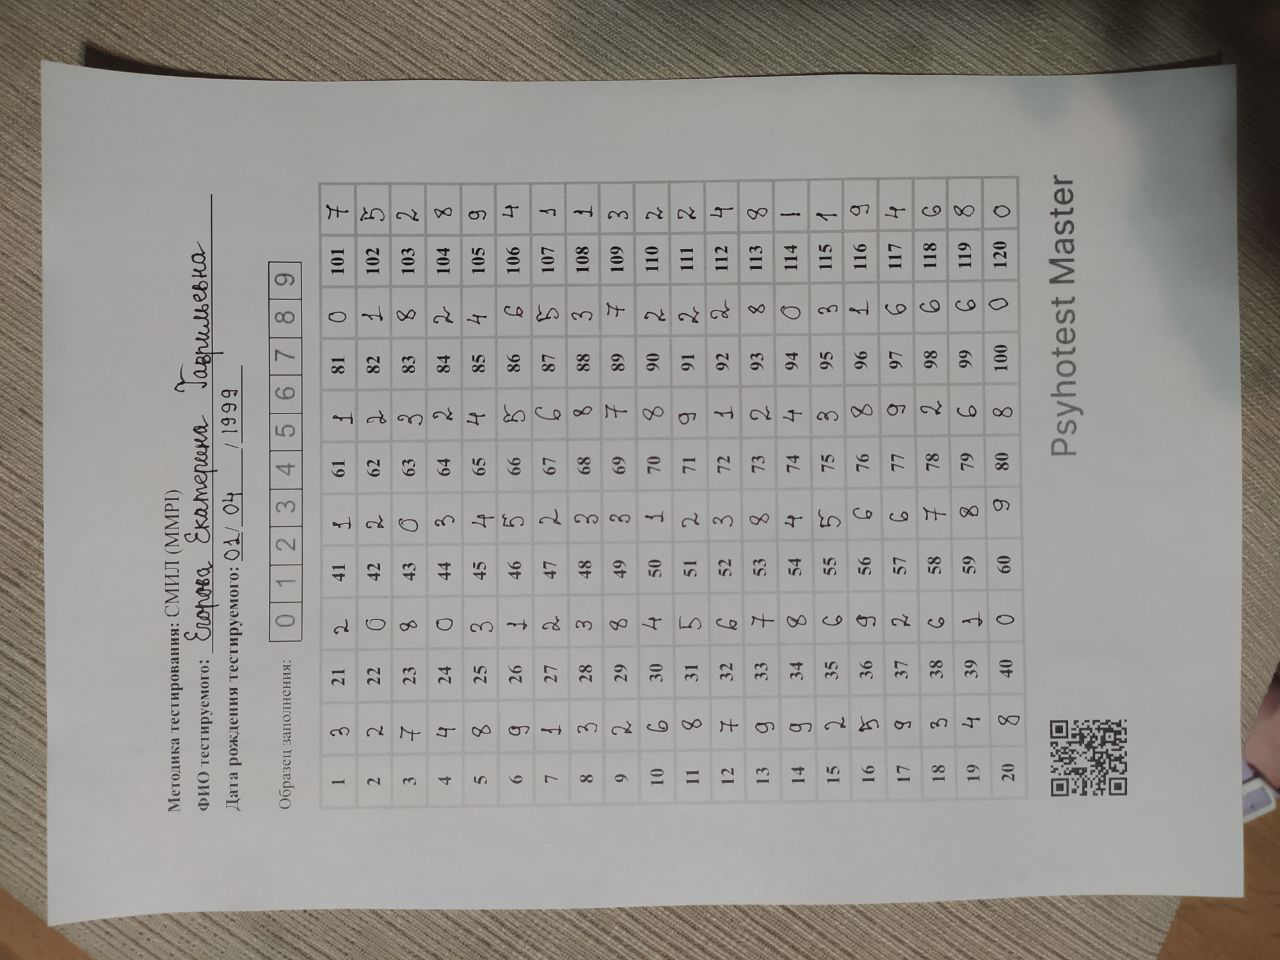 Методика тестирования: СМИЛ (MMPI)
ФИО тестируемого: Егорова Екатерина Гаврильевна
Дата рождения тестируемого: 01/04/1999
Образец заполнения: 0 1 2 3 4 5 6 7 8 9
1 3 21 2 41 1 61 1 81 0 101 7
2 2 22 0 42 2 62 2 82 1 102 5
3 7 23 8 43 0 63 3 83 8 103 2
4 4 24 0 44 3 64 2 84 2 104 8
5 8 25 3 45 4 65 4 85 4 105 9
6 9 26 1 46 5 66 5 86 6 106 4
7 1 27 2 47 2 67 6 87 5 107 1
8 3 28 3 48 3 68 8 88 3 108 1
9 2 29 8 49 3 69 7 89 7 109 3
10 6 30 4 50 1 70 8 90 2 110 2
11 8 31 5 51 2 71 9 91 2 111 2
12 7 32 6 52 3 72 1 92 2 112 4
13 9 33 7 53 8 73 2 93 8 113 8
14 9 34 8 54 4 74 4 94 0 114 1
15 2 35 6 55 5 75 3 95 3 115 1
16 5 36 9 56 6 76 8 96 1 116 9
17 9 37 2 57 6 77 9 97 6 117 4
18 3 38 6 58 7 78 2 98 6 118 6
19 4 39 1 59 8 79 6 99 6 119 8
20 8 40 0 60 9 80 8 100 0 120 0
Psyhotest Master